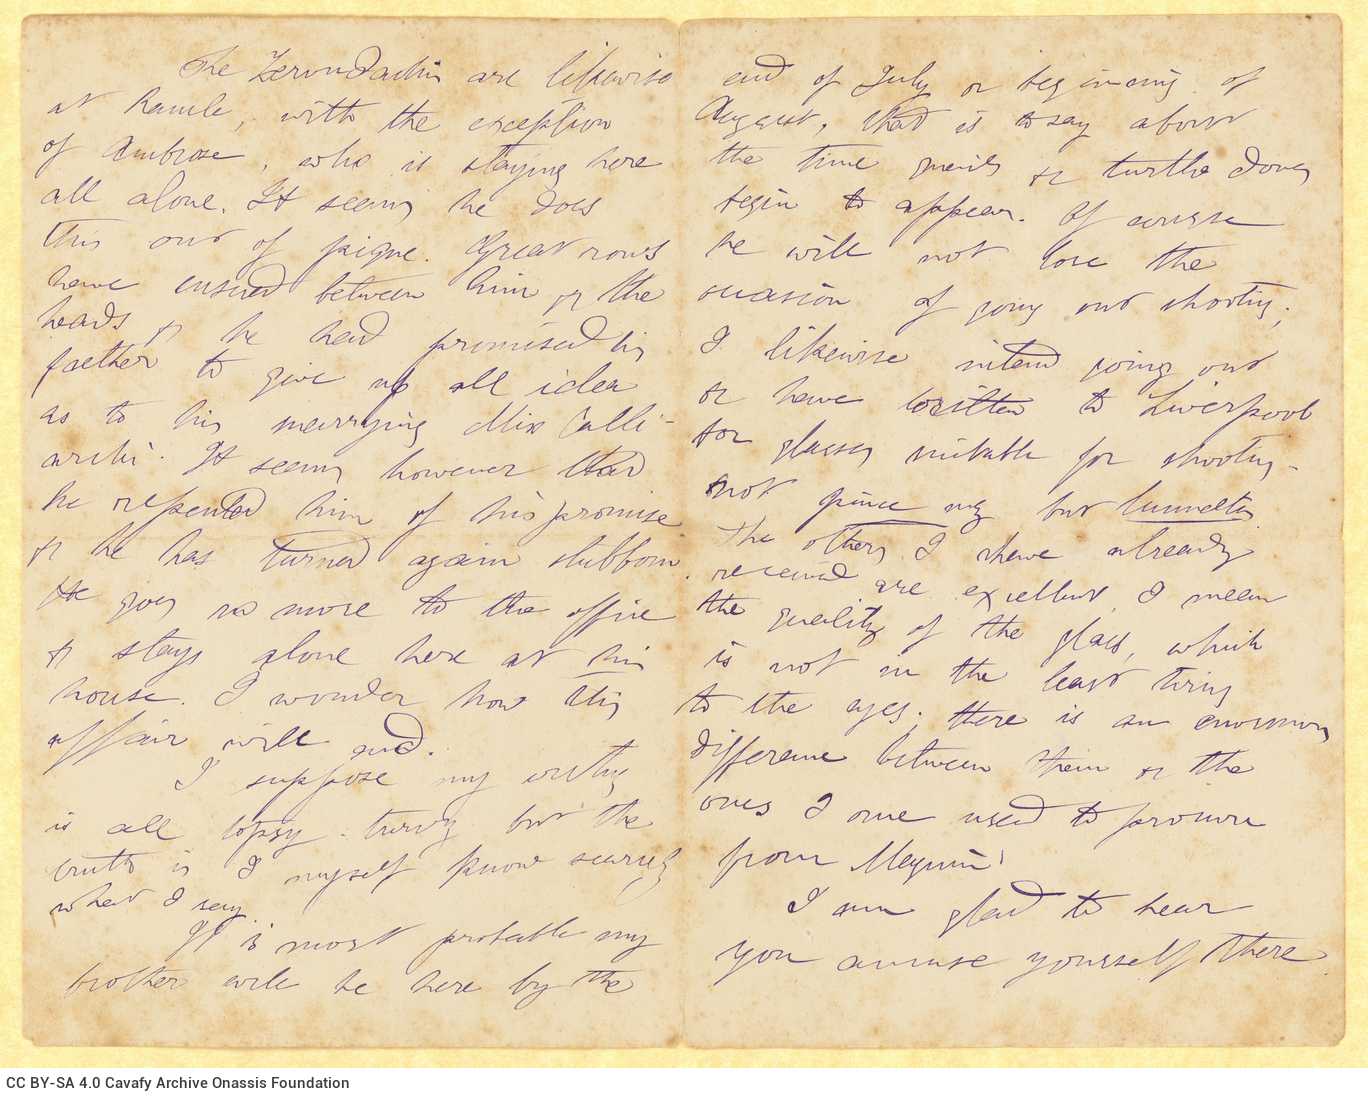 The Zervudachis are likewise
at Ramle, with the exception
of Ambrose, who is staying here
all alone. It seems he does
this out of pique. Great rows
have ensued between him & the
heads & he had promised his
father to give up all idea
as to his marrying Miss Calli-
archi. It seems however that
he repented him of his promise
& he has turned again stubborn.
He goes no more to the office
& stays alone here at his
house. I wonder how this
affair will end.
I suppose my writing
is all topsy-turvy but the
truth is I myself know scarcely
what I say
It is most probable my
brother will be here by the
end of July or beginning of
August, that is to say about
the time quails & turtle doves
begin to appear. Of course
he will not lose the
occasion of going out shooting;
I likewise intend going out
& have written to Liverpool
for glasses suitable for shooting -
not pince nez but lunettes
The others I have already
received are excellent, I mean
the quality of the glass, which
is not in the least tiring
to the eyes; there is an enormous
difference between them & the
ones I once used to procure
from
I am glad to hear
you amuse yourself there
CC BY-SA 4.0 Cavafy Archive Onassis Foundation